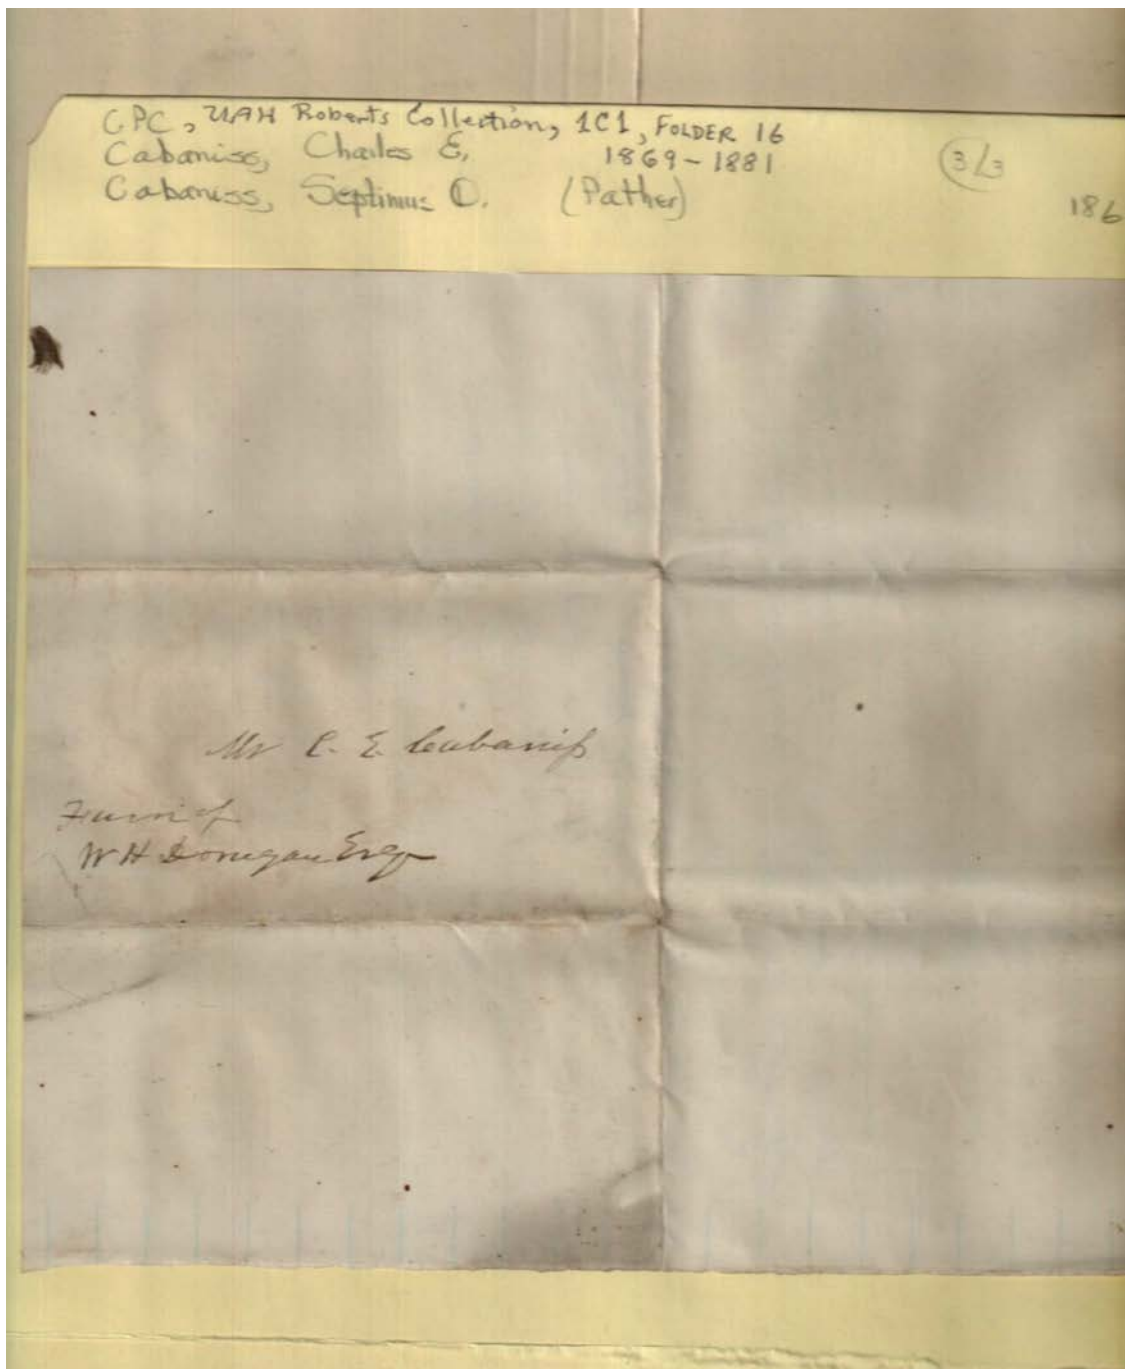 CPC, UAH Roberts Collection, 1C1, FOLDER 16
Cabaniss, Charles E. 1869-1881
3/3
Cabaniss, Septimus D. (Father)
186
Mr C. E. Cabaniss
W H Donegan Esqr